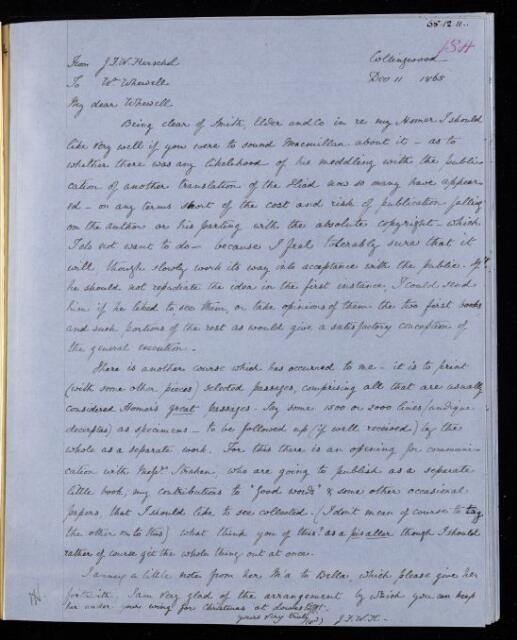 65.12.11.
JSH
From J.F.W. Herschel
Collingwood
To Wm Whewell
Dec 11 1865
My dear Whewell
Being clear of Smith, Elder and Co in re my Homer I should
like very well if you were to sound Macmillan about it – as to
whether there was any likelihood of his meddling with the publi-
cation of another translation of the Iliad now so many have appear-
ed – on any terms short of the cost and risk of publication falling
on the author or his parting with the absolute copyright – which
I do not want to do – because I feel tolerably sure that it
will though slowly work its way into acceptance with the public. If
he should not repudiate the idea in the first instance, I could send
him if he liked to see them, or take opinions of them the two first books
and such portions of the rest as would give a satisfactory conception of
the general execution.
There is another course which has occurred to me – it is to print
(with some other pieces) selected passages, comprising all that are usually
considered Homer's great passages. Say some 1500 or 2000 lines (undique
decerptas) as specimens – to be followed up (if well received) by the
whole as a separate work. For this there is an opening for communi-
cation with Messrs. Strahan, who are going to publish as a separate
little book, my contributions to "Good words" & some other occasional
papers, that I should like to see collected. (I don't mean of course to tag
the other on to this) what think you of this? as a pis aller though I should
rather of course get the whole thing out at once.
I annex a little note from her M'a to Bella, which please give her
forthwith, I am very glad of the arrangement by which you can keep
her under your wing for Christmas at
yours very truly
J.F.W.H.